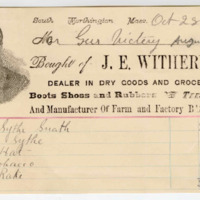 South Worthington Mass. Oct 23
Mr Gus Victery
Bought of J. E. WITHER
DEALER IN DRY GOODS AND GROCE
Boots Shoes and Rubbers
And Manufacturer Of Farm and Factory B
Sythe Snath
" Sythe
Hat
Tobacco
Rake